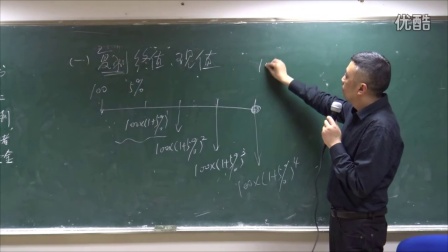 优酷
(一) 复利终值、现值
100 5%
100×(1+5%)
100×(1+5%)²
100×(1+5%)³
100×(1+5%)⁴
1